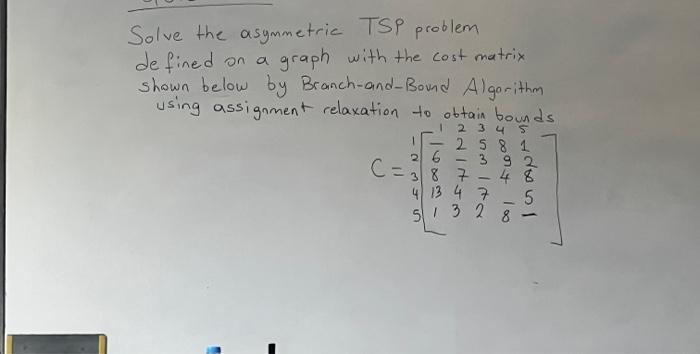 Solve the asymmetric TSP problem
defined on a graph with the cost matrix
shown below by Branch-and-Bound Algorithm
using assignment relaxation to obtain bounds
1 2 3 4 5
1 – 2 5 8 1
2 6 – 3 9 2
C = 3 8 7 – 4 8
4 13 4 7 – 5
5 1 3 2 8 –